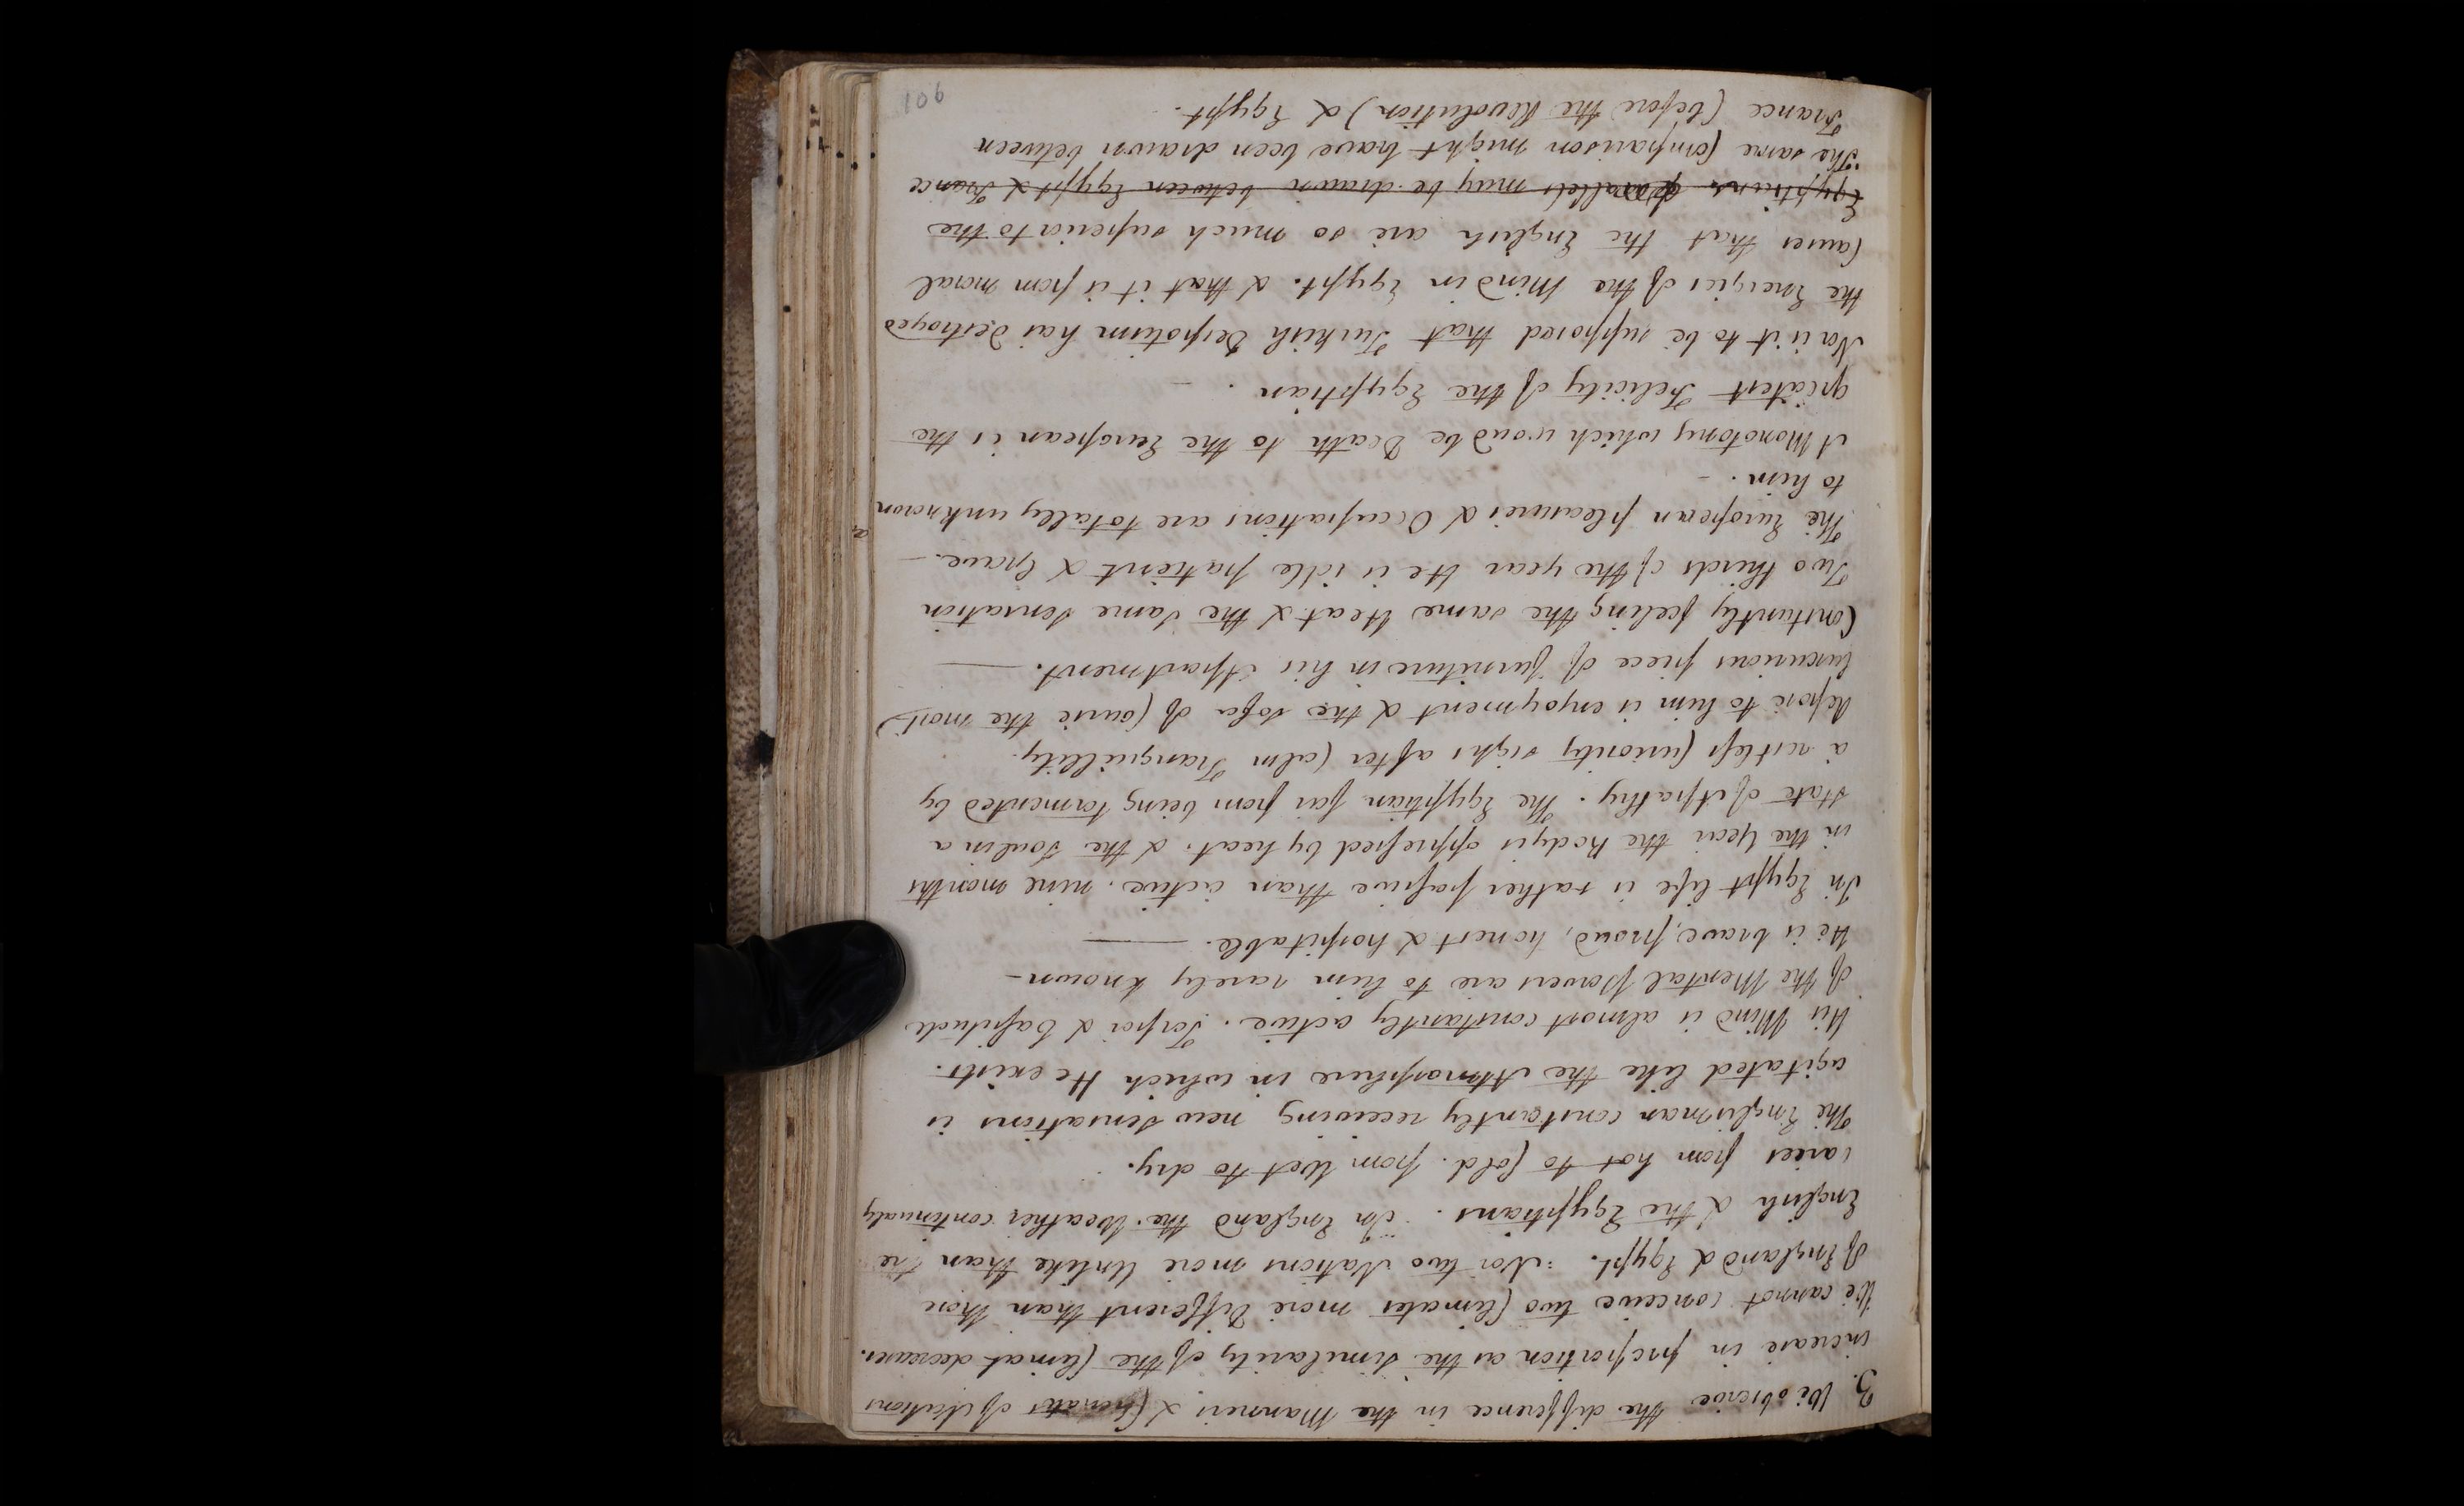 3. We observe the difference in the Manners & of Nations
increase in proportion as the similarity of the Climat decreases.
We cannot conceive two Climates more Different than those
of England & Egypt. Nor two Nations more Unlike than the
English & the Egyptians. In England the Weather continualy
varies from hot to Cold. from Wet to dry.
The Englisman constantly receiving new Sensations is
agitated like the Atmosphere in which He exists.
His Mind is almost constantly active. Torpor & Lassitude
of the Mental Powers are to him rarely known —
He is brave, proud, honest & hospitable. —
In Egypt life is rather passive than active. nine months
in the Year the Body is oppressed by heat. & the Soul in a
state of Apathy. The Egyptian far from being tormented by
a restless Curiosity sighs after Calm Tranquillity.
Repose to him is enjoyment & the sofa of Course the most
luxurious piece of furniture in his Apartment. —
Constantly feeling the same Heat & the same Sensation
Two thirds of the year He is idle patient & Grave. —
The European pleasures & Occupations are totally unknown
to him. —
A Monotony which woud be Death to the European is the
greatest Felicity of the Egyptian . —
Nor is it to be supposed that Turkish Despotism has destroyed
the Energies of the Mind in Egypt. & that it is from moral
Causes that the English are so much superior to the
Egyptians parallels may be drawn between Egypt & France
The same Comparison might have been drawn between
France (before the Revolution) & Egypt.
106